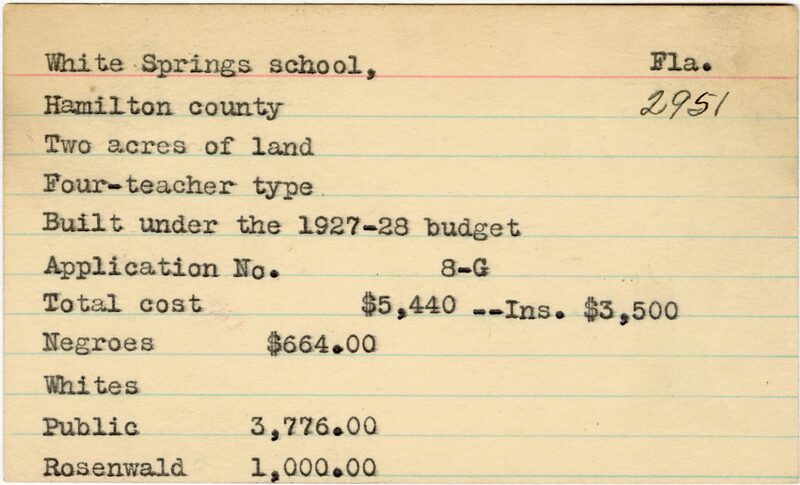 White Springs school, Fla.
Hamilton county 2951
Two acres of land
Four-teacher type
Built under the 1927-28 budget
Application No. 8-G
Total cost $5,440 --Ins. $3,500
Negroes $664.00
Whites
Public 3,776.00
Rosenwald 1,000.00